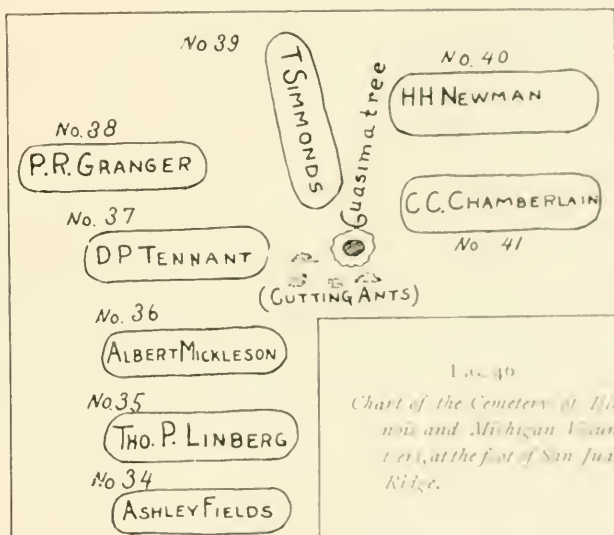 No 39
T SIMMONDS
Guasima tree
No. 40
HH NEWMAN
No. 38
P.R. GRANGER
C.C. CHAMBERLAIN
No 41
No. 37
D P TENNANT
(CUTTING ANTS)
No. 36
ALBERT MICKLESON
No. 35
THO. P. LINBERG
No 34
ASHLEY FIELDS
Chart of the Cemetery of
nois and Michigan
at the foot of San
Ridge.